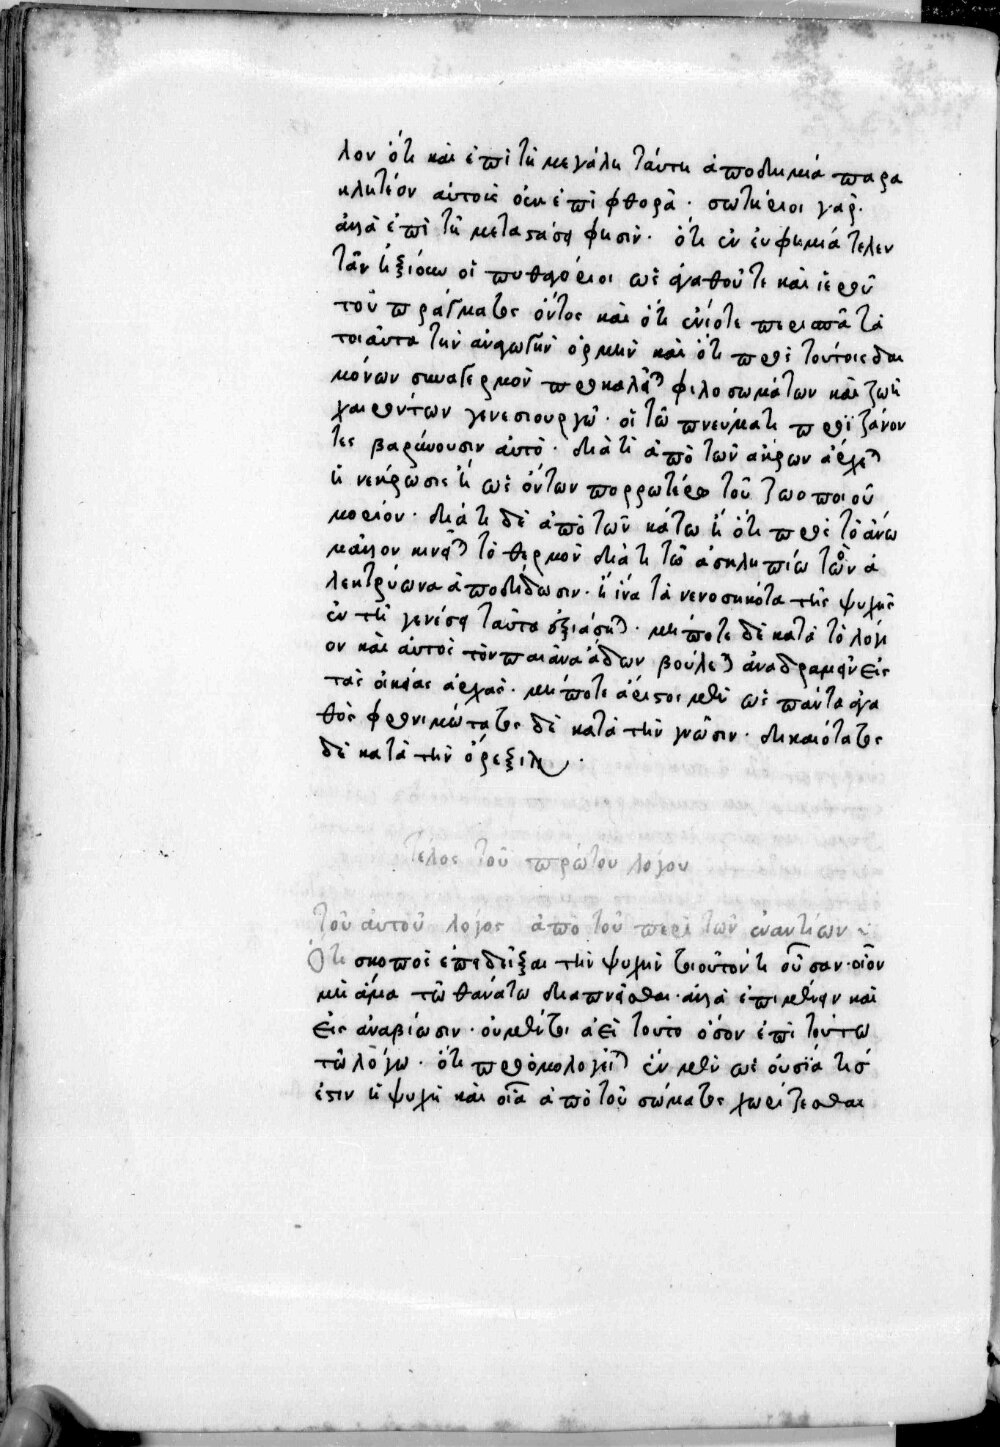 λον ὅτι καὶ ἐπὶ τῇ μεγάλῃ ταύτῃ ἀποδημίᾳ παρα
κλητέον αὐτοῖς οὐκ ἐπὶ φθορᾷ · σωτήριοι γάρ ·
ἀλλὰ ἐπὶ τῇ μεταστάσει φησίν · ὅτι ἐν εὐφημίᾳ τελευ
τᾶν ἠξίουν οἱ πυθαγόριοι ὡς ἀγαθοῦ τε καὶ ἱεροῦ
τοῦ πράγματος ὄντος καὶ ὅτι ἐνίοτε περισπᾶ τὰ
τοιαῦτα τὴν ἀναγωγὴν ὁρμὴν καὶ ὅτι πρὸς τούτοις δαι
μόνων συναγερμὸν προκαλεῖται φιλοσωμάτων καὶ ζωῇ
χαιρόντων γενεσιουργῷ · οἳ τῷ πνεύματι προσϊζάνον
τες βαρύνουσιν αὐτό · διὰ τί ἀπὸ τῶν ἄκρων ἄρχεται
ἡ νέκρωσις ἢ ὡς ὄντων πορρωτέρω τοῦ ζωοποιοῦ
μορίου · διὰ τί δὲ ἀπὸ τῶν κάτω ἢ ὅτι πρὸς τὸ ἄνω
μᾶλλον κινεῖται τὸ θερμὸν διὰ τί τῷ ἀσκληπιῷ τὸν ἀ
λεκτρύωνα ἀποδίδωσιν · ἢ ἵνα τὰ νενοσηκότα τῆς ψυχῆς
ἐν τῇ γενέσει ταῦτα ἐξιάσηται · μήποτε δὲ κατὰ τὸ λόγι
ον καὶ αὐτὸς τὸν παιᾶνα ἄδων βούλεται ἀναδραμεῖν εἰς
τὰς οἰκείας ἀρχάς · μήποτε ἄριστος μὲν ὡς πάντα ἀγα
θὸς φρονιμώτατος δὲ κατὰ τὴν γνῶσιν · δικαιότατος
δὲ κατὰ τὴν ὄρεξιν ·
τέλος τοῦ πρώτου λόγου
τοῦ αὐτοῦ λόγος ἀπὸ τοῦ περὶ τῶν ἐναντίων ~
Ὅτι σκοπὸς ἐπιδεῖξαι τὴν ψυχὴν τοιοῦτόν τι οὖσαν · οἷον
μὴ ἅμα τῷ θανάτῳ διαπνεῖσθαι · ἀλλὰ ἐπιμένειν καὶ
εἰς ἀναβίωσιν · οὐ μέντοι ἀεὶ τοῦτο ὅσον ἐπὶ τούτῳ
τῷ λόγῳ · ὅτι προομολογεῖται ἓν μὲν ὡς οὐσία τίς
ἐστιν ἡ ψυχὴ καὶ οἵα ἀπὸ τοῦ σώματος χωρίζεσθαι